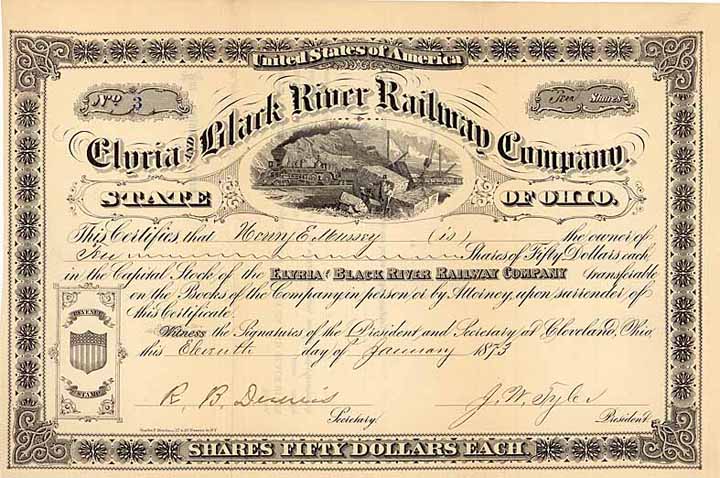 United States of America
No 3
Ten Shares
Elyria and Black River Railway Company.
STATE OF OHIO.
This Certifies, that Henry E. Mussey (is) the owner of
Ten Shares of Fifty Dollars each
in the Capital Stock of the ELYRIA & BLACK RIVER RAILWAY COMPANY transferable
on the Books of the Company in person or by Attorney, upon surrender of
this Certificate.
Witness the Signatures of the President and Secretary at Cleveland, Ohio,
this Eleventh day of January 1873
REVENUE
STAMP.
R. B. Dennis J. W. Tyler
Secretary. President.
SHARES FIFTY DOLLARS EACH.